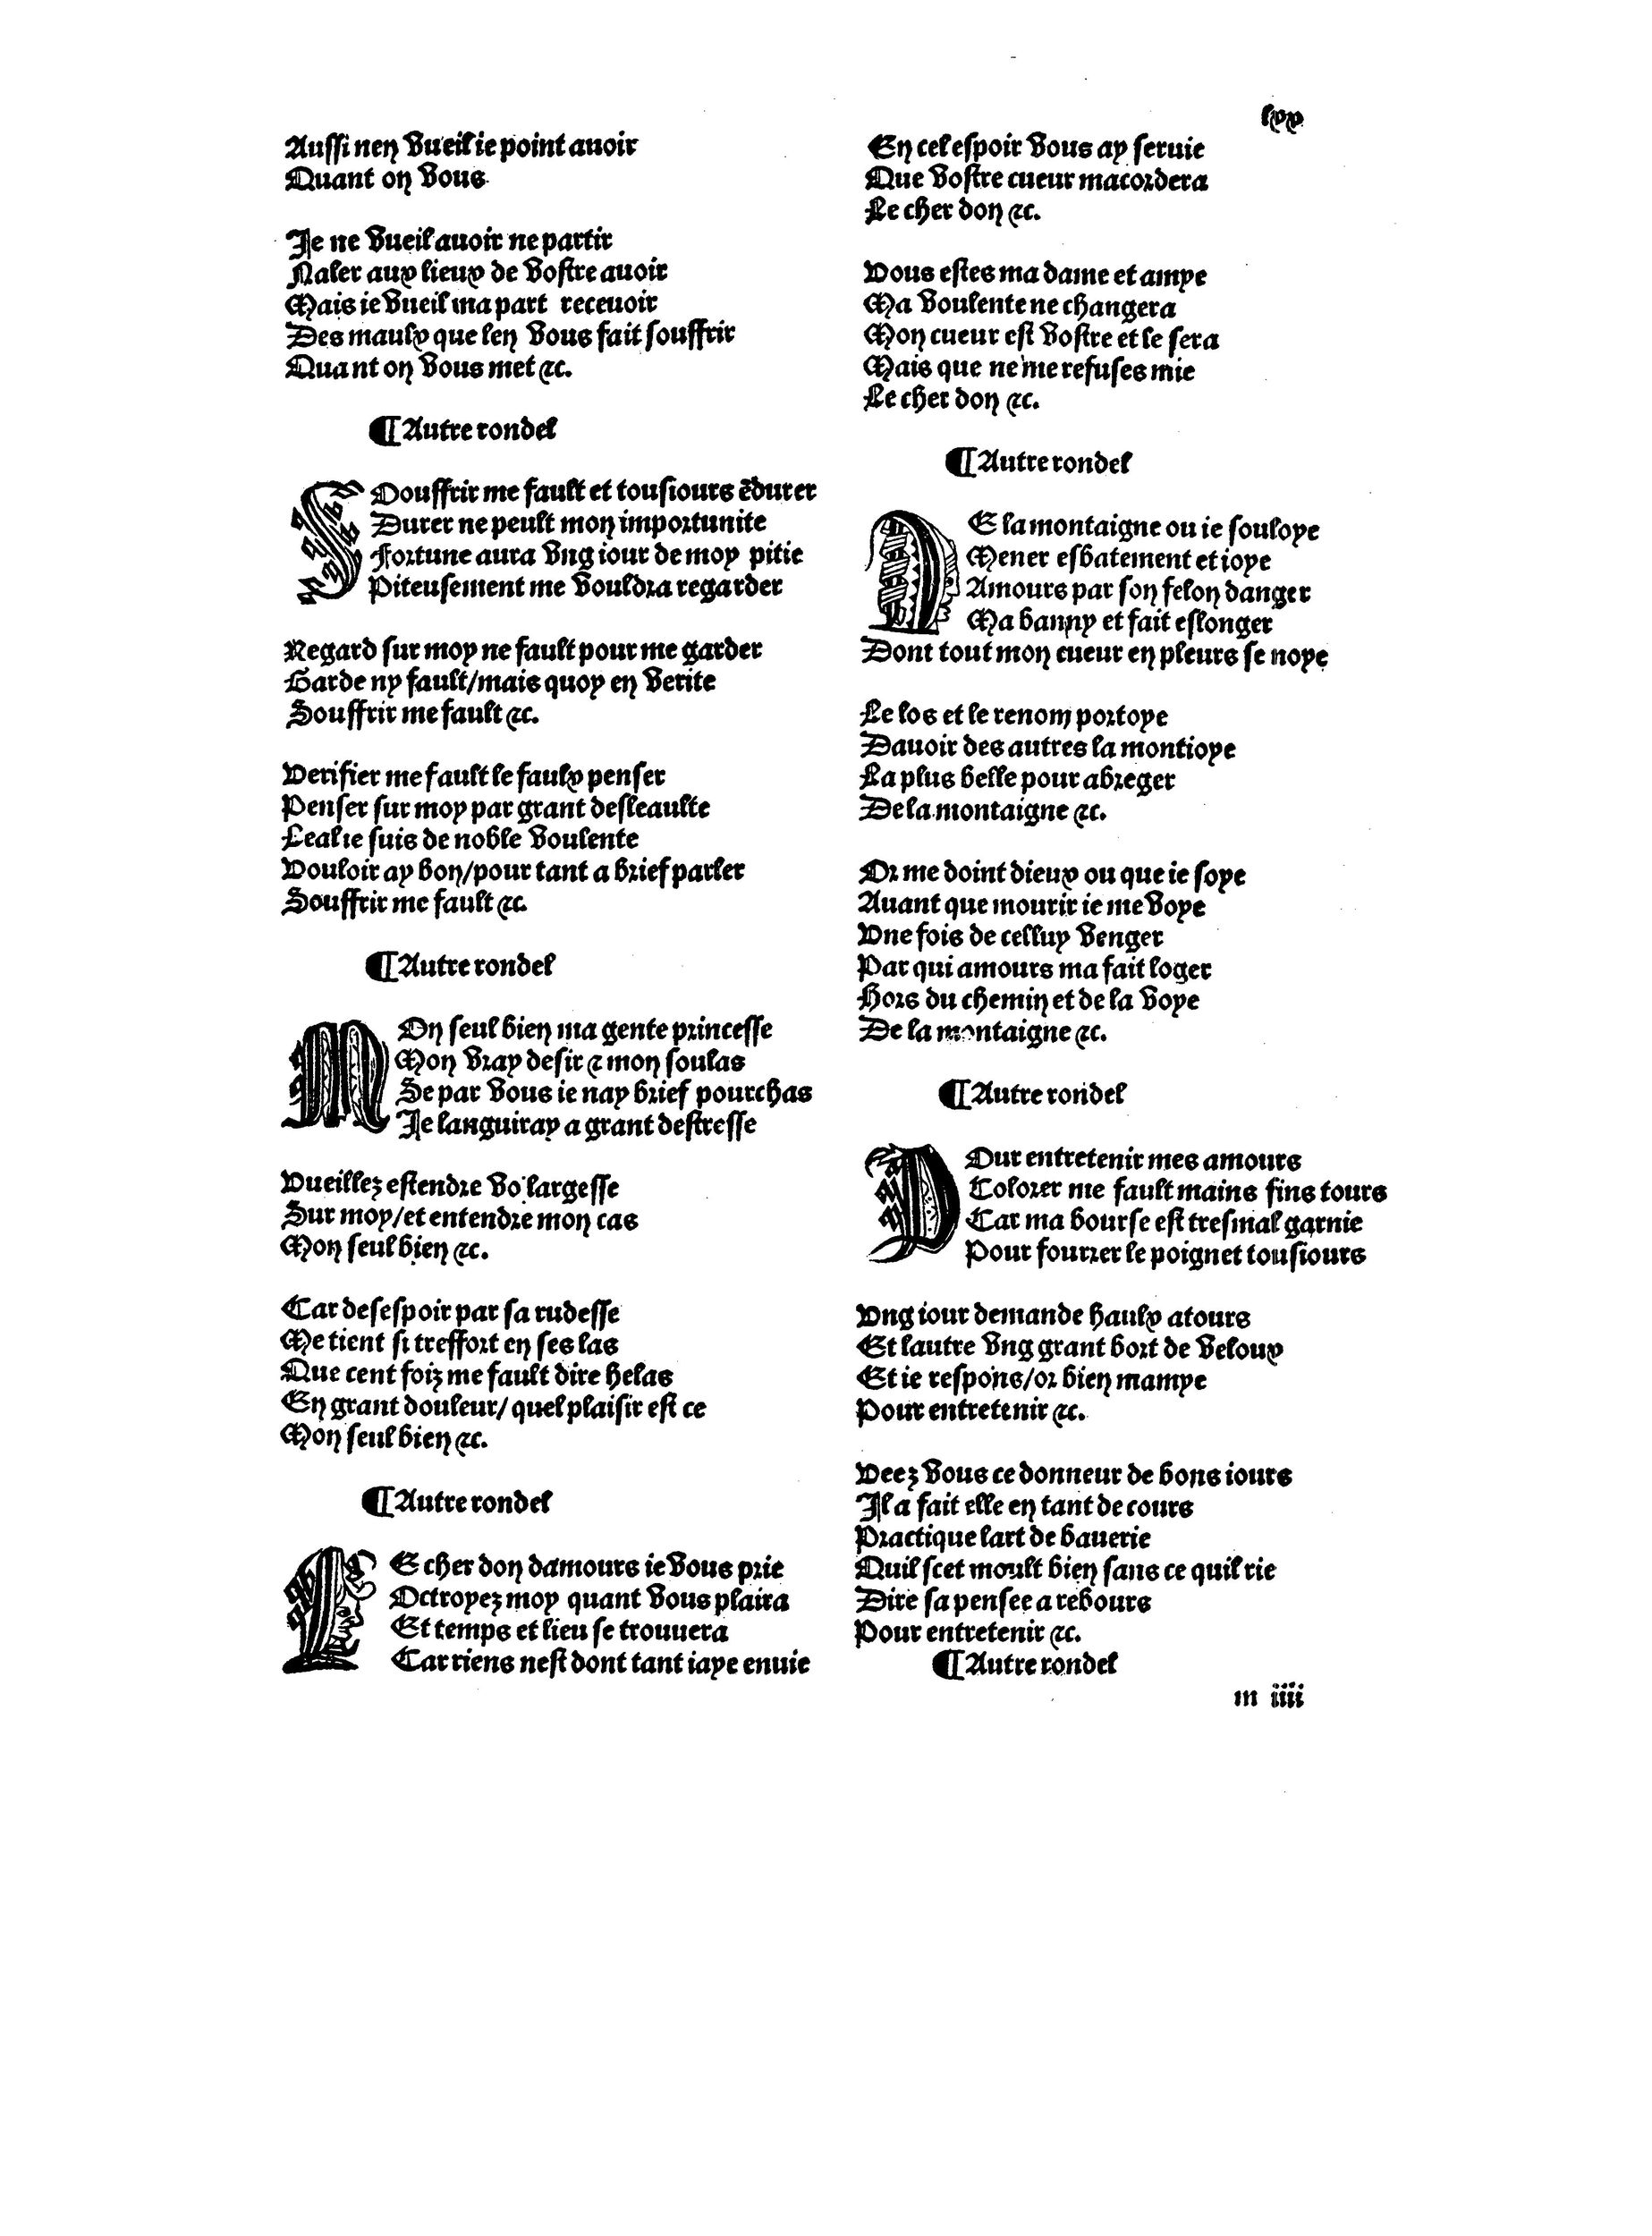 lxx
Aussi nen vueil ie point auoir
Quant on vous
Je ne vueil auoir ne partir
Naler aux lieux de vostre auoir
Mais ie vueil ma part receuoir
Des maulx que len vous fait souffrir
Quant on vous met &c.
¶ Autre rondel
SOuffrir me fault et tousiours ẽdurer
Durer ne peult mon importunite
Fortune aura vng iour de moy pitie
Piteusement me vouldra regarder
Regard sur moy ne fault pour me garder
Garde ny fault/mais quoy en verite
Souffrir me fault &c.
Verifier me fault le faulx penser
Penser sur moy par grant desleaulte
Leal ie suis de noble voulente
Vouloir ay bon/pour tant a brief parler
Souffrir me fault &c.
¶ Autre rondel
MOn seul bien ma gente princesse
Mon vray desir & mon soulas
Se par vous ie nay brief pourchas
Je languiray a grant destresse
Vueillez estendre vo' largesse
Sur moy/et entendre mon cas
Mon seul bien &c.
Car desespoir par sa rudesse
Me tient si treffort en ses las
Que cent foiz me fault dire helas
En grant douleur/quel plaisir est ce
Mon seul bien &c.
¶ Autre rondel
LE cher don damours ie vous prie
Octroyez moy quant vous plaira
Et temps et lieu se trouuera
Car riens nest dont tant iaye enuie
En cel espoir vous ay seruie
Que vostre cueur macordera
Le cher don &c.
Vous estes ma dame et amye
Ma voulente ne changera
Mon cueur est vostre et le sera
Mais que ne me refuses mie
Le cher don &c.
¶ Autre rondel
DE la montaigne ou ie souloye
Mener esbatement et ioye
Amours par son felon danger
Ma banny et fait eslonger
Dont tout mon cueur en pleurs se noye
Le los et le renom portoye
Dauoir des autres la montioye
La plus belle pour abreger
De la montaigne &c.
Or me doint dieux ou que ie soye
Auant que mourir ie me voye
Vne fois de celluy venger
Par qui amours ma fait loger
Hors du chemin et de la voye
De la montaigne &c.
¶ Autre rondel
POur entretenir mes amours
Colorer me fault mains fins tours
Car ma bourse est tresmal garnie
Pour fourrer le poignet tousiours
Vng iour demande haulx atours
Et lautre vng grant bort de veloux
Et ie respons/or bien mamye
Pour entretenir &c.
Veez vous ce donneur de bons iours
Il a fait elle en tant de cours
Practique lart de bauerie
Quil scet moult bien sans ce quil rie
Dire sa pensee a rebours
Pour entretenir &c.
¶ Autre rondel
m iiii